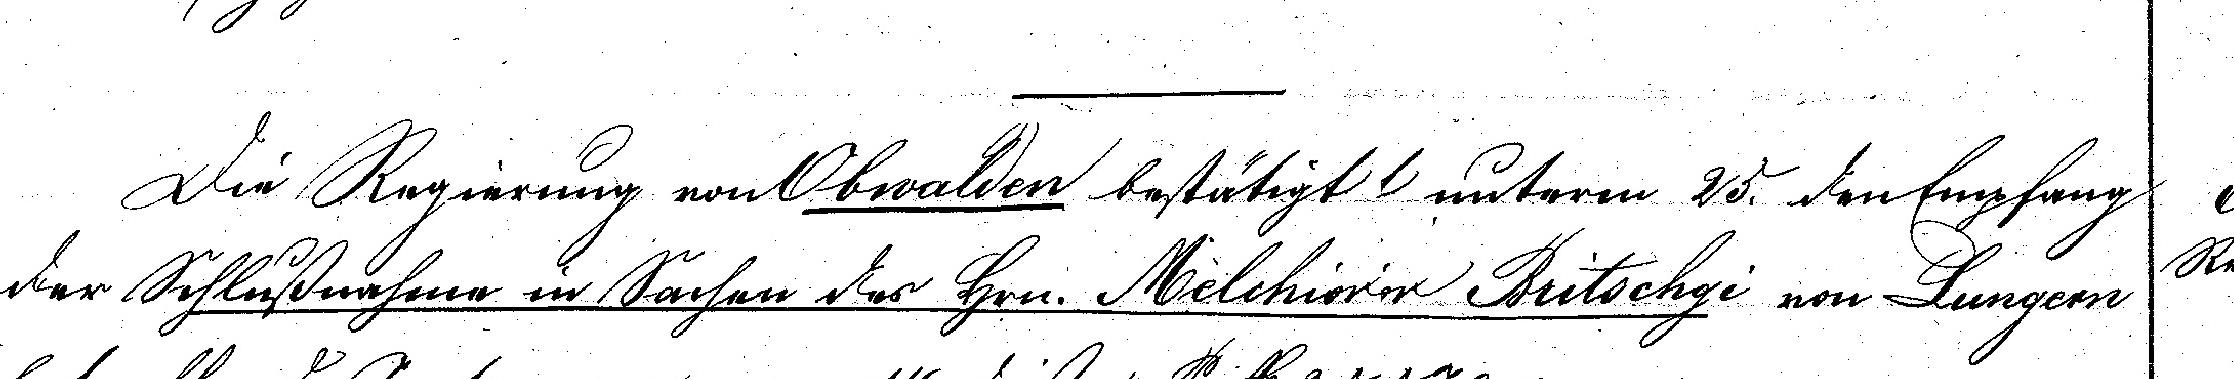 Die Regierung von Obwalden bestätigt unterm 25. den Empfang
der Schlußnahme in Sachen des Hrn. Melchior Britschgi von Lungern